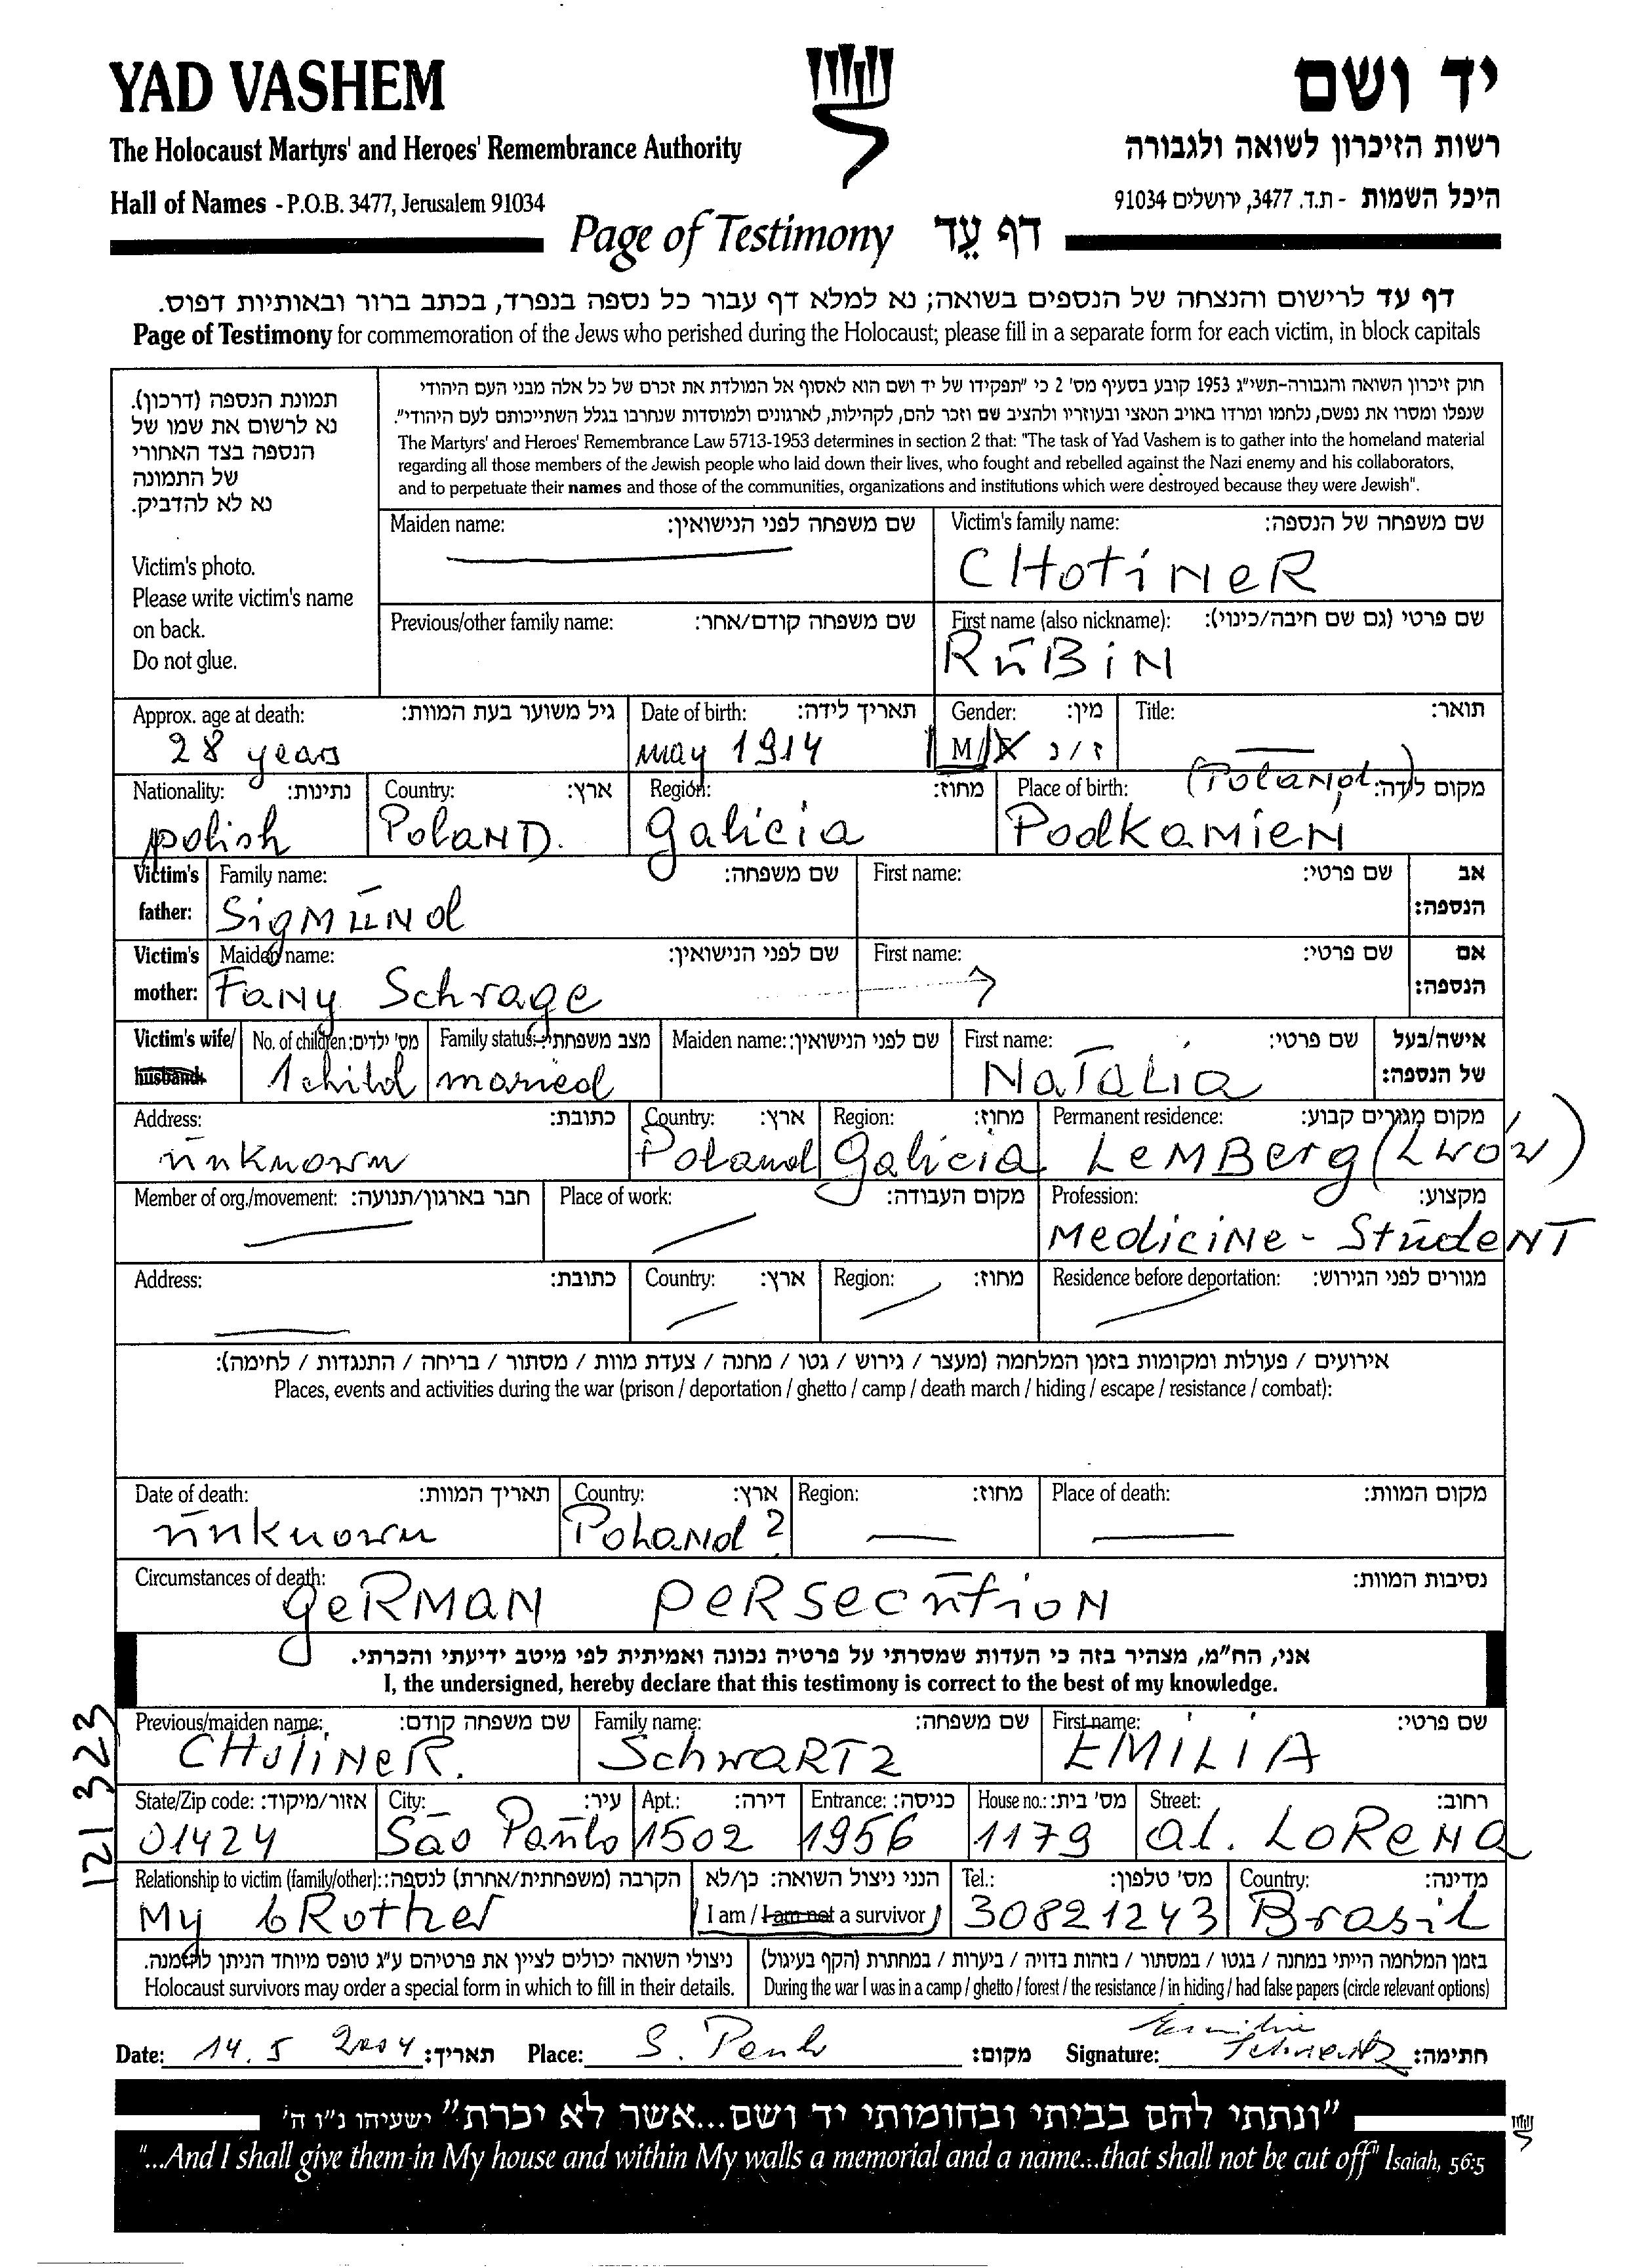 YAD VASHEM
יד ושם
The Holocaust Martyrs' and Heroes' Remembrance Authority
רשות הזיכרון לשואה ולגבורה
Hall of Names - P.O.B. 3477, Jerusalem 91034
היכל השמות - ת.ד. 3477, ירושלים 91034
Page of Testimony דף עֵד
דף עד לרישום והנצחה של הנספים בשואה; נא למלא דף עבור כל נספה בנפרד, בכתב ברור ובאותיות דפוס.
Page of Testimony for commemoration of the Jews who perished during the Holocaust; please fill in a separate form for each victim, in block capitals
תמונת הנספה (דרכון).
נא לרשום את שמו של
הנספה בצד האחורי
של התמונה
נא לא להדביק.
Victim's photo.
Please write victim's name
on back.
Do not glue.
חוק זיכרון השואה והגבורה-תשי"ג 1953 קובע בסעיף מס' 2 כי "תפקידו של יד ושם הוא לאסוף אל המולדת את זכרם של כל אלה מבני העם היהודי
שנפלו ומסרו את נפשם, נלחמו ומרדו באויב הנאצי ובעוזריו ולהציב שם וזכר להם, לקהילות, לארגונים ולמוסדות שנחרבו בגלל השתייכותם לעם היהודי".
The Martyrs' and Heroes' Remembrance Law 5713-1953 determines in section 2 that: "The task of Yad Vashem is to gather into the homeland material
regarding all those members of the Jewish people who laid down their lives, who fought and rebelled against the Nazi enemy and his collaborators,
and to perpetuate their names and those of the communities, organizations and institutions which were destroyed because they were Jewish".
Maiden name: שם משפחה לפני הנישואין: Victim's family name: שם משפחה של הנספה:
CHOTiNeR
Previous/other family name: שם משפחה קודם/אחר: First name (also nickname): שם פרטי (גם שם חיבה/כינוי):
RūBiN
Approx. age at death: גיל משוער בעת המוות: Date of birth: תאריך לידה: Gender: מין: Title: תואר:
28 years may 1914 M/F ז/נ
Nationality: נתינות: Country: ארץ: Region: מחוז: Place of birth: (Poland) מקום לידה:
polish PolaND. galicia PodKaMieN
Victim's father: Family name: שם משפחה: First name: שם פרטי: אב הנספה:
SigMūNd
Victim's mother: Maiden name: שם לפני הנישואין: First name: שם פרטי: אם הנספה:
FaNy Schrage
Victim's wife/husband: No. of children: מס' ילדים: Family status: מצב משפחתי: Maiden name: שם לפני הנישואין: First name: שם פרטי: אישה/בעל של הנספה:
1 child maried NaTaLia
Address: כתובת: Country: ארץ: Region: מחוז: Permanent residence: מקום מגורים קבוע:
ūnknown Poland galicia LeMBerg (Lwów)
Member of org./movement: חבר בארגון/תנועה: Place of work: מקום העבודה: Profession: מקצוע:
MediciNe - StūdeNT
Address: כתובת: Country: ארץ: Region: מחוז: Residence before deportation: מגורים לפני הגירוש:
אירועים / פעולות ומקומות בזמן המלחמה (מעצר / גירוש / גטו / מחנה / צעדת מוות / מסתור / בריחה / התנגדות / לחימה):
Places, events and activities during the war (prison / deportation / ghetto / camp / death march / hiding / escape / resistance / combat):
Date of death: תאריך המוות: Country: ארץ: Region: מחוז: Place of death: מקום המוות:
ūnknown PoLaNd ?
Circumstances of death: נסיבות המוות:
geRMaN PeRSecūtioN
אני, הח"מ, מצהיר בזה כי העדות שמסרתי על פרטיה נכונה ואמיתית לפי מיטב ידיעתי והכרתי.
I, the undersigned, hereby declare that this testimony is correct to the best of my knowledge.
121323
Previous/maiden name: שם משפחה קודם: Family name: שם משפחה: First name: שם פרטי:
CHOTiNeR. SchwaRTz EMILIA
State/Zip code: אזור/מיקוד: City: עיר: Apt.: דירה: Entrance: כניסה: House no.: מס' בית: Street: רחוב:
01424 São Paūlo 1502 1956 1179 al. LoReNa
Relationship to victim (family/other): הקרבה (משפחתית/אחרת) לנספה: הנני ניצול השואה: כן/לא Tel.: מס' טלפון: Country: מדינה:
My bRother I am / I am not a survivor 30821243 Brasil
ניצולי השואה יכולים לציין את פרטיהם ע"ג טופס מיוחד הניתן להזמנה. בזמן המלחמה הייתי במחנה / בגטו / במסתור / בזהות בדויה / ביערות / במחתרת (הקף בעיגול)
Holocaust survivors may order a special form in which to fill in their details. During the war I was in a camp / ghetto / forest / the resistance / in hiding / had false papers (circle relevant options)
Date: 14.5 2004 תאריך: Place: S. Paulo מקום: Signature: Emilia Schwartz חתימה:
"ונתתי להם בביתי ובחומותי יד ושם...אשר לא יכרת" ישעיהו נ"ו ה'
"...And I shall give them in My house and within My walls a memorial and a name...that shall not be cut off" Isaiah, 56:5